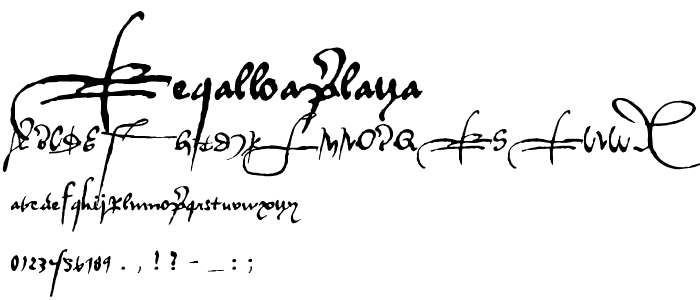 Regalloaplaya
ABCDEFGHIJKLMNOPQRSTUVWX
abcdefghijklmnopqrstuvwxyz
0123456789 . , ! ? - _ : ;